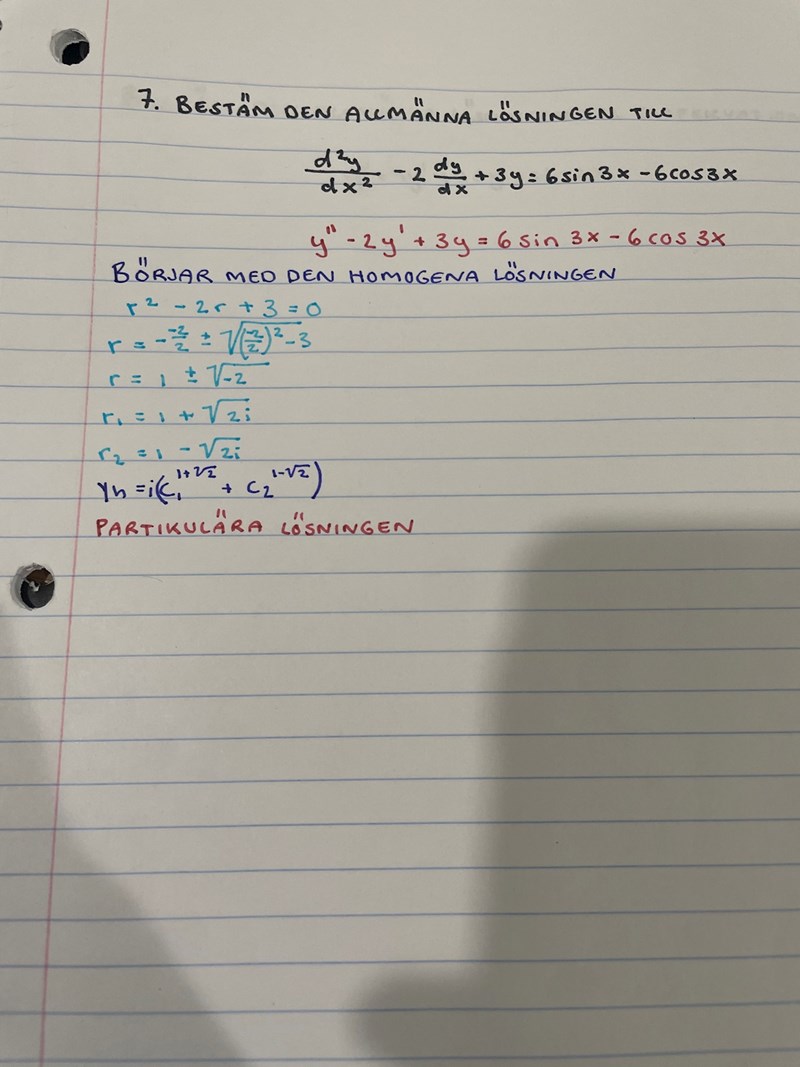 7. BESTÄM DEN ALLMÄNNA LÖSNINGEN TILL
d²y/dx² - 2 dy/dx + 3y = 6 sin 3x - 6 cos 3x
y'' - 2y' + 3y = 6 sin 3x - 6 cos 3x
BÖRJAR MED DEN HOMOGENA LÖSNINGEN
r² - 2r + 3 = 0
r = - -2/2 ± √((-2/2)² - 3)
r = 1 ± √-2
r₁ = 1 + √2i
r₂ = 1 - √2i
yh = i(C₁^(1+√2) + C₂^(1-√2))
PARTIKULÄRA LÖSNINGEN